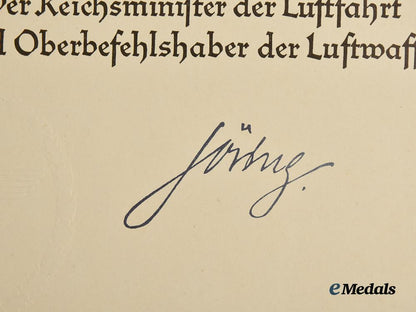 Der Reichsminister der Luftfahrt
d Oberbefehlshaber der Luftwaff
Göring.
eMedals